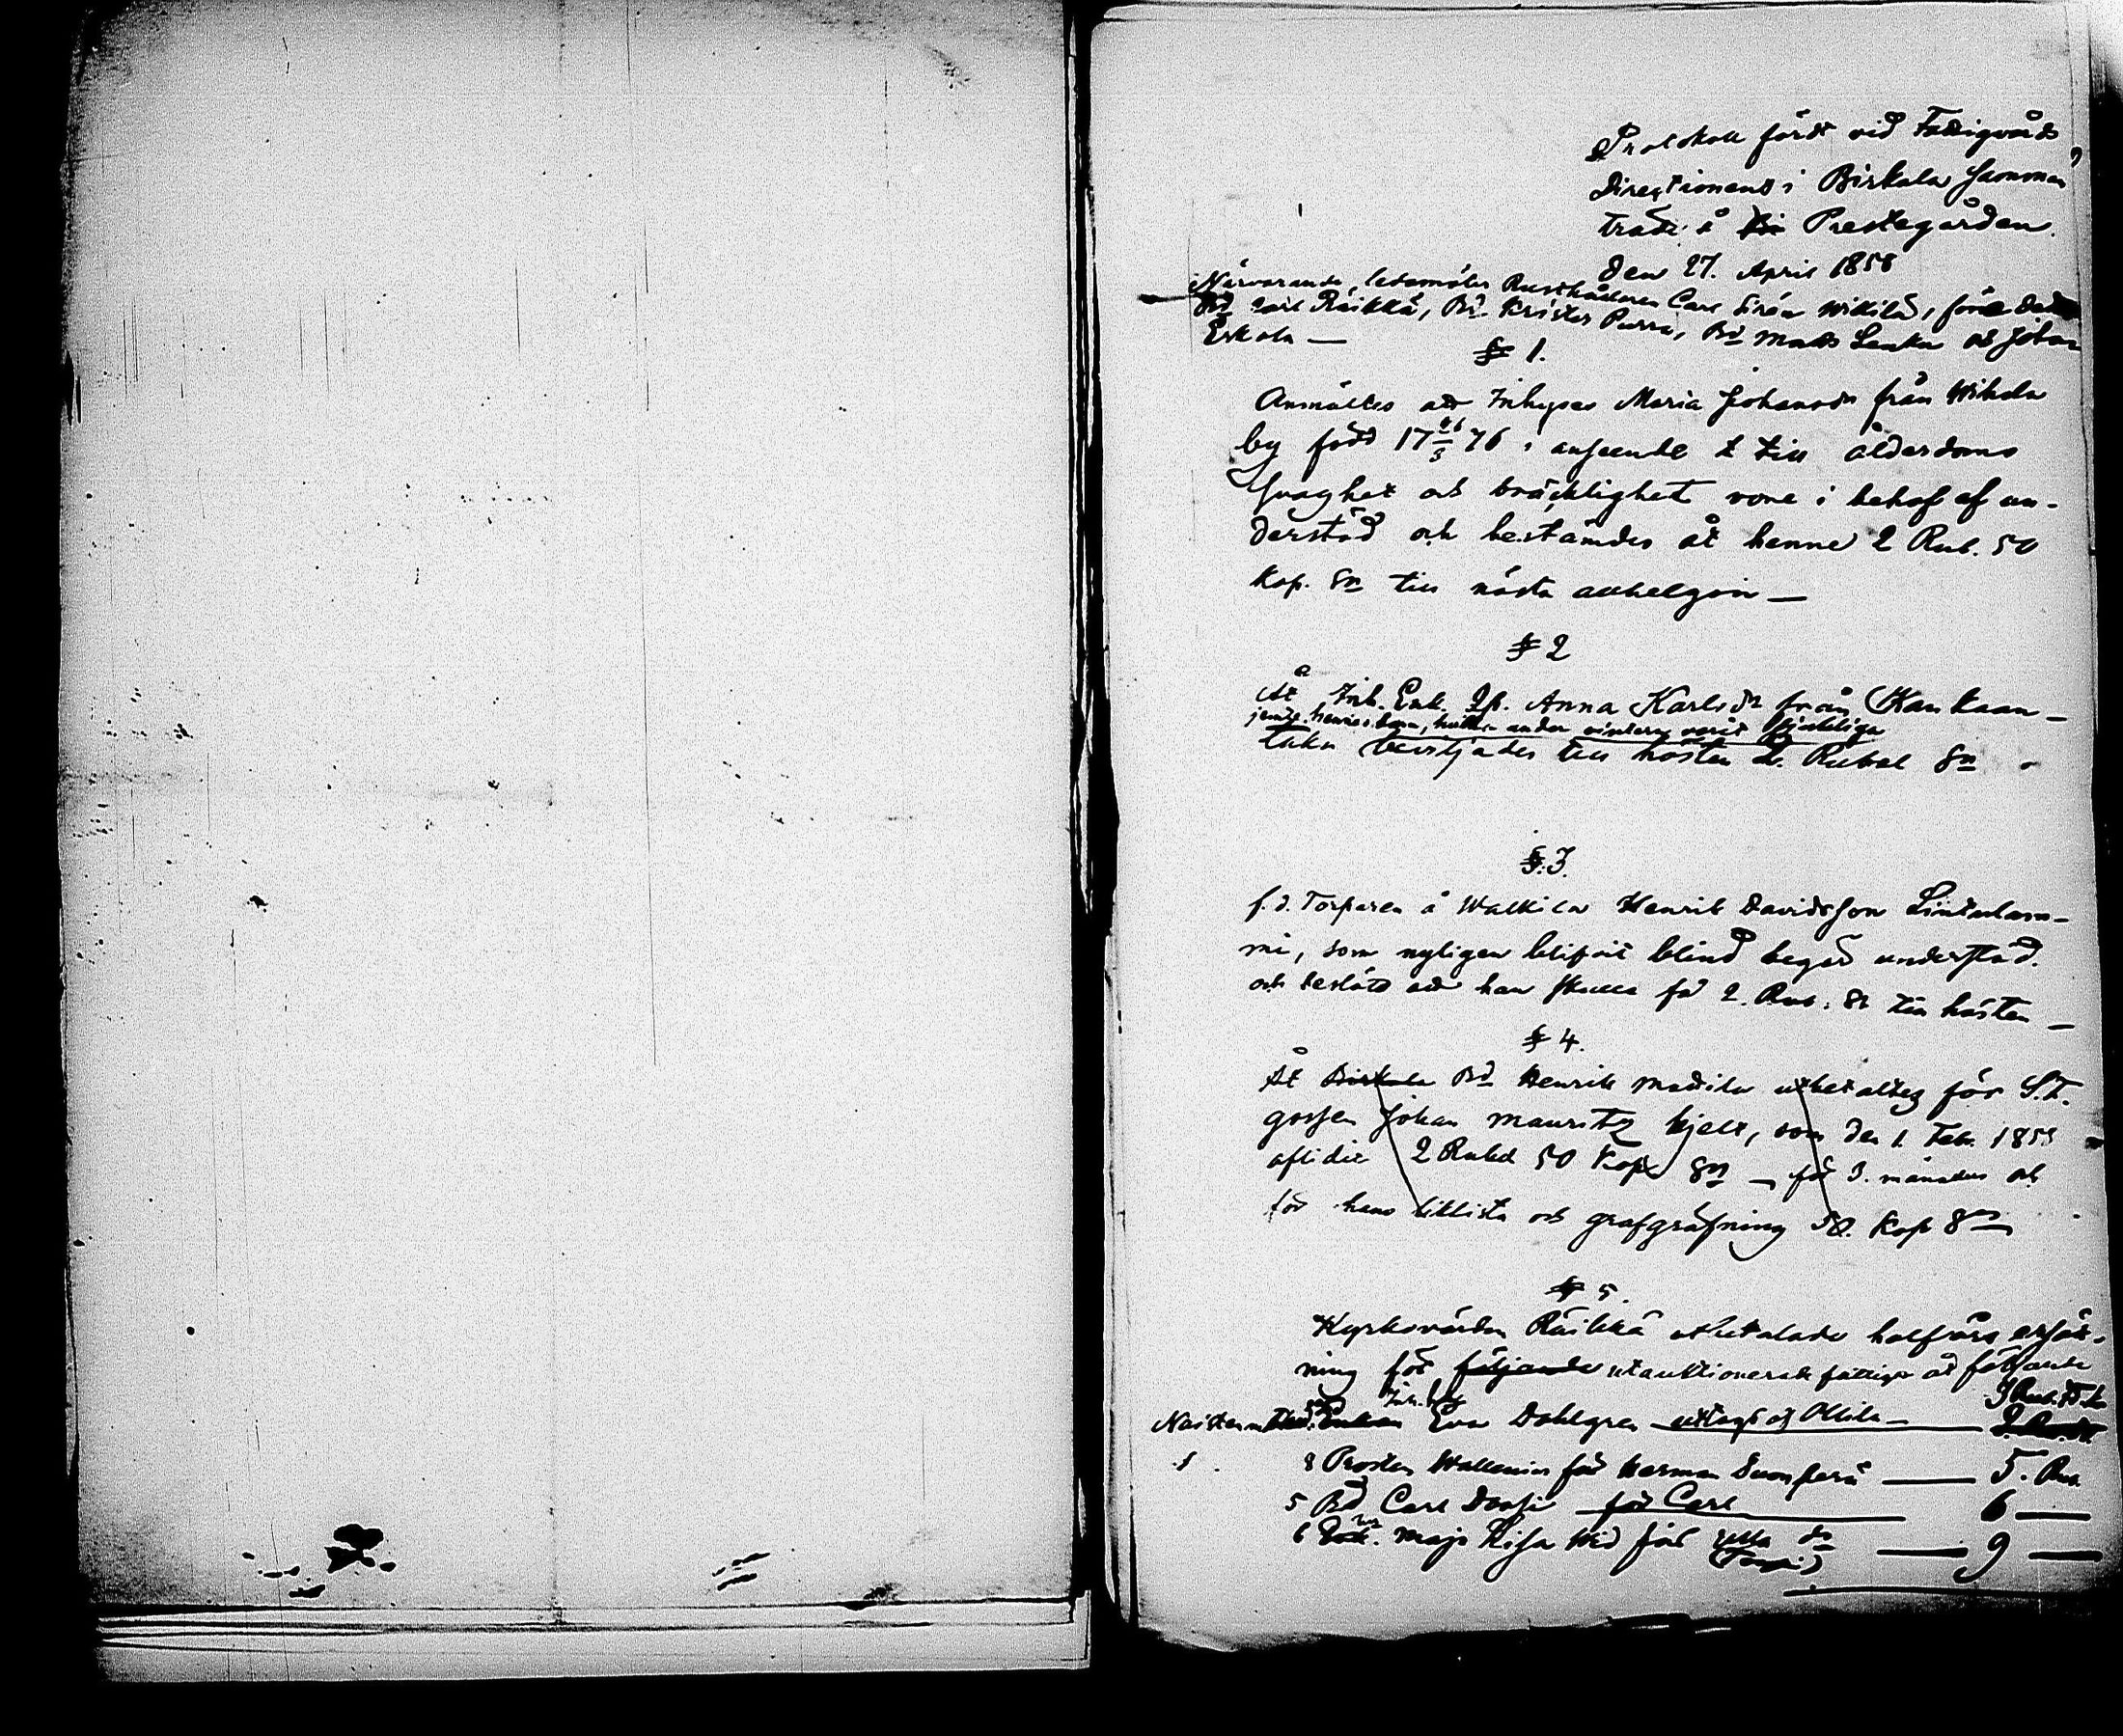 Protokoll fördt vid Fattigvårds
Directionens i Birkala samman
träde å Prestegården
den 27. April 1858
Närvarande, ledamöter Rusthållaren Carl Sirén Wikkilä, före detta
Bd Carl Räikkä, Bd Krister Purra, Bd Matts Lenku och Johan
Eskola —
§ 1.
Anmältes att Inhyses Maria Johansdr från Wihola
by född 17 26/3 76 i anseende t till ålderdoms
svaghet och bräcklighet vore i behof af un-
derstöd och bestämdes åt henne 2 Rub. 50
Kop. Sr till nästa allhelgon —
§ 2
Åt Inh. Enk. Anna Karlsdr från Kankaan-
jemte hennes barn, hvilka under vintern varit sjukliga
taka beviljades till hösten 2. Rubel Sr
§. 3.
f. d. Torparen å Walkila Henrik Davidsson Lintulam-
mi, som nyligen blifvit blind begär understöd.
och beslöts att han skulle få 2. Rub. Sr till hösten —
§ 4.
Åt Birkala Bd Henrik Mattila utbetaltes för S.T.
gossen Johan Mauritz Hjelt, som den 1 Feb. 1858
aflidit 2 Rubel 50 Kop Sr — för 3. månader och
för hans likkista och grafgräfning 50. Kop Sr
§ 5.
Kyrkovärden Räikkä utbetalade halfårs ersätt-
ning för följande utauktionerade fattige åt följande
Inh. 3 Rub.
Eva Dahlgren uttagt af Ollila —
8 Prosten Wallenius för Herman Suonperä — 5. Rub.
5 Bd Carl Dansi för Carl — 6 —
6 Maja Lisa Wid för Ulla do — 9 —